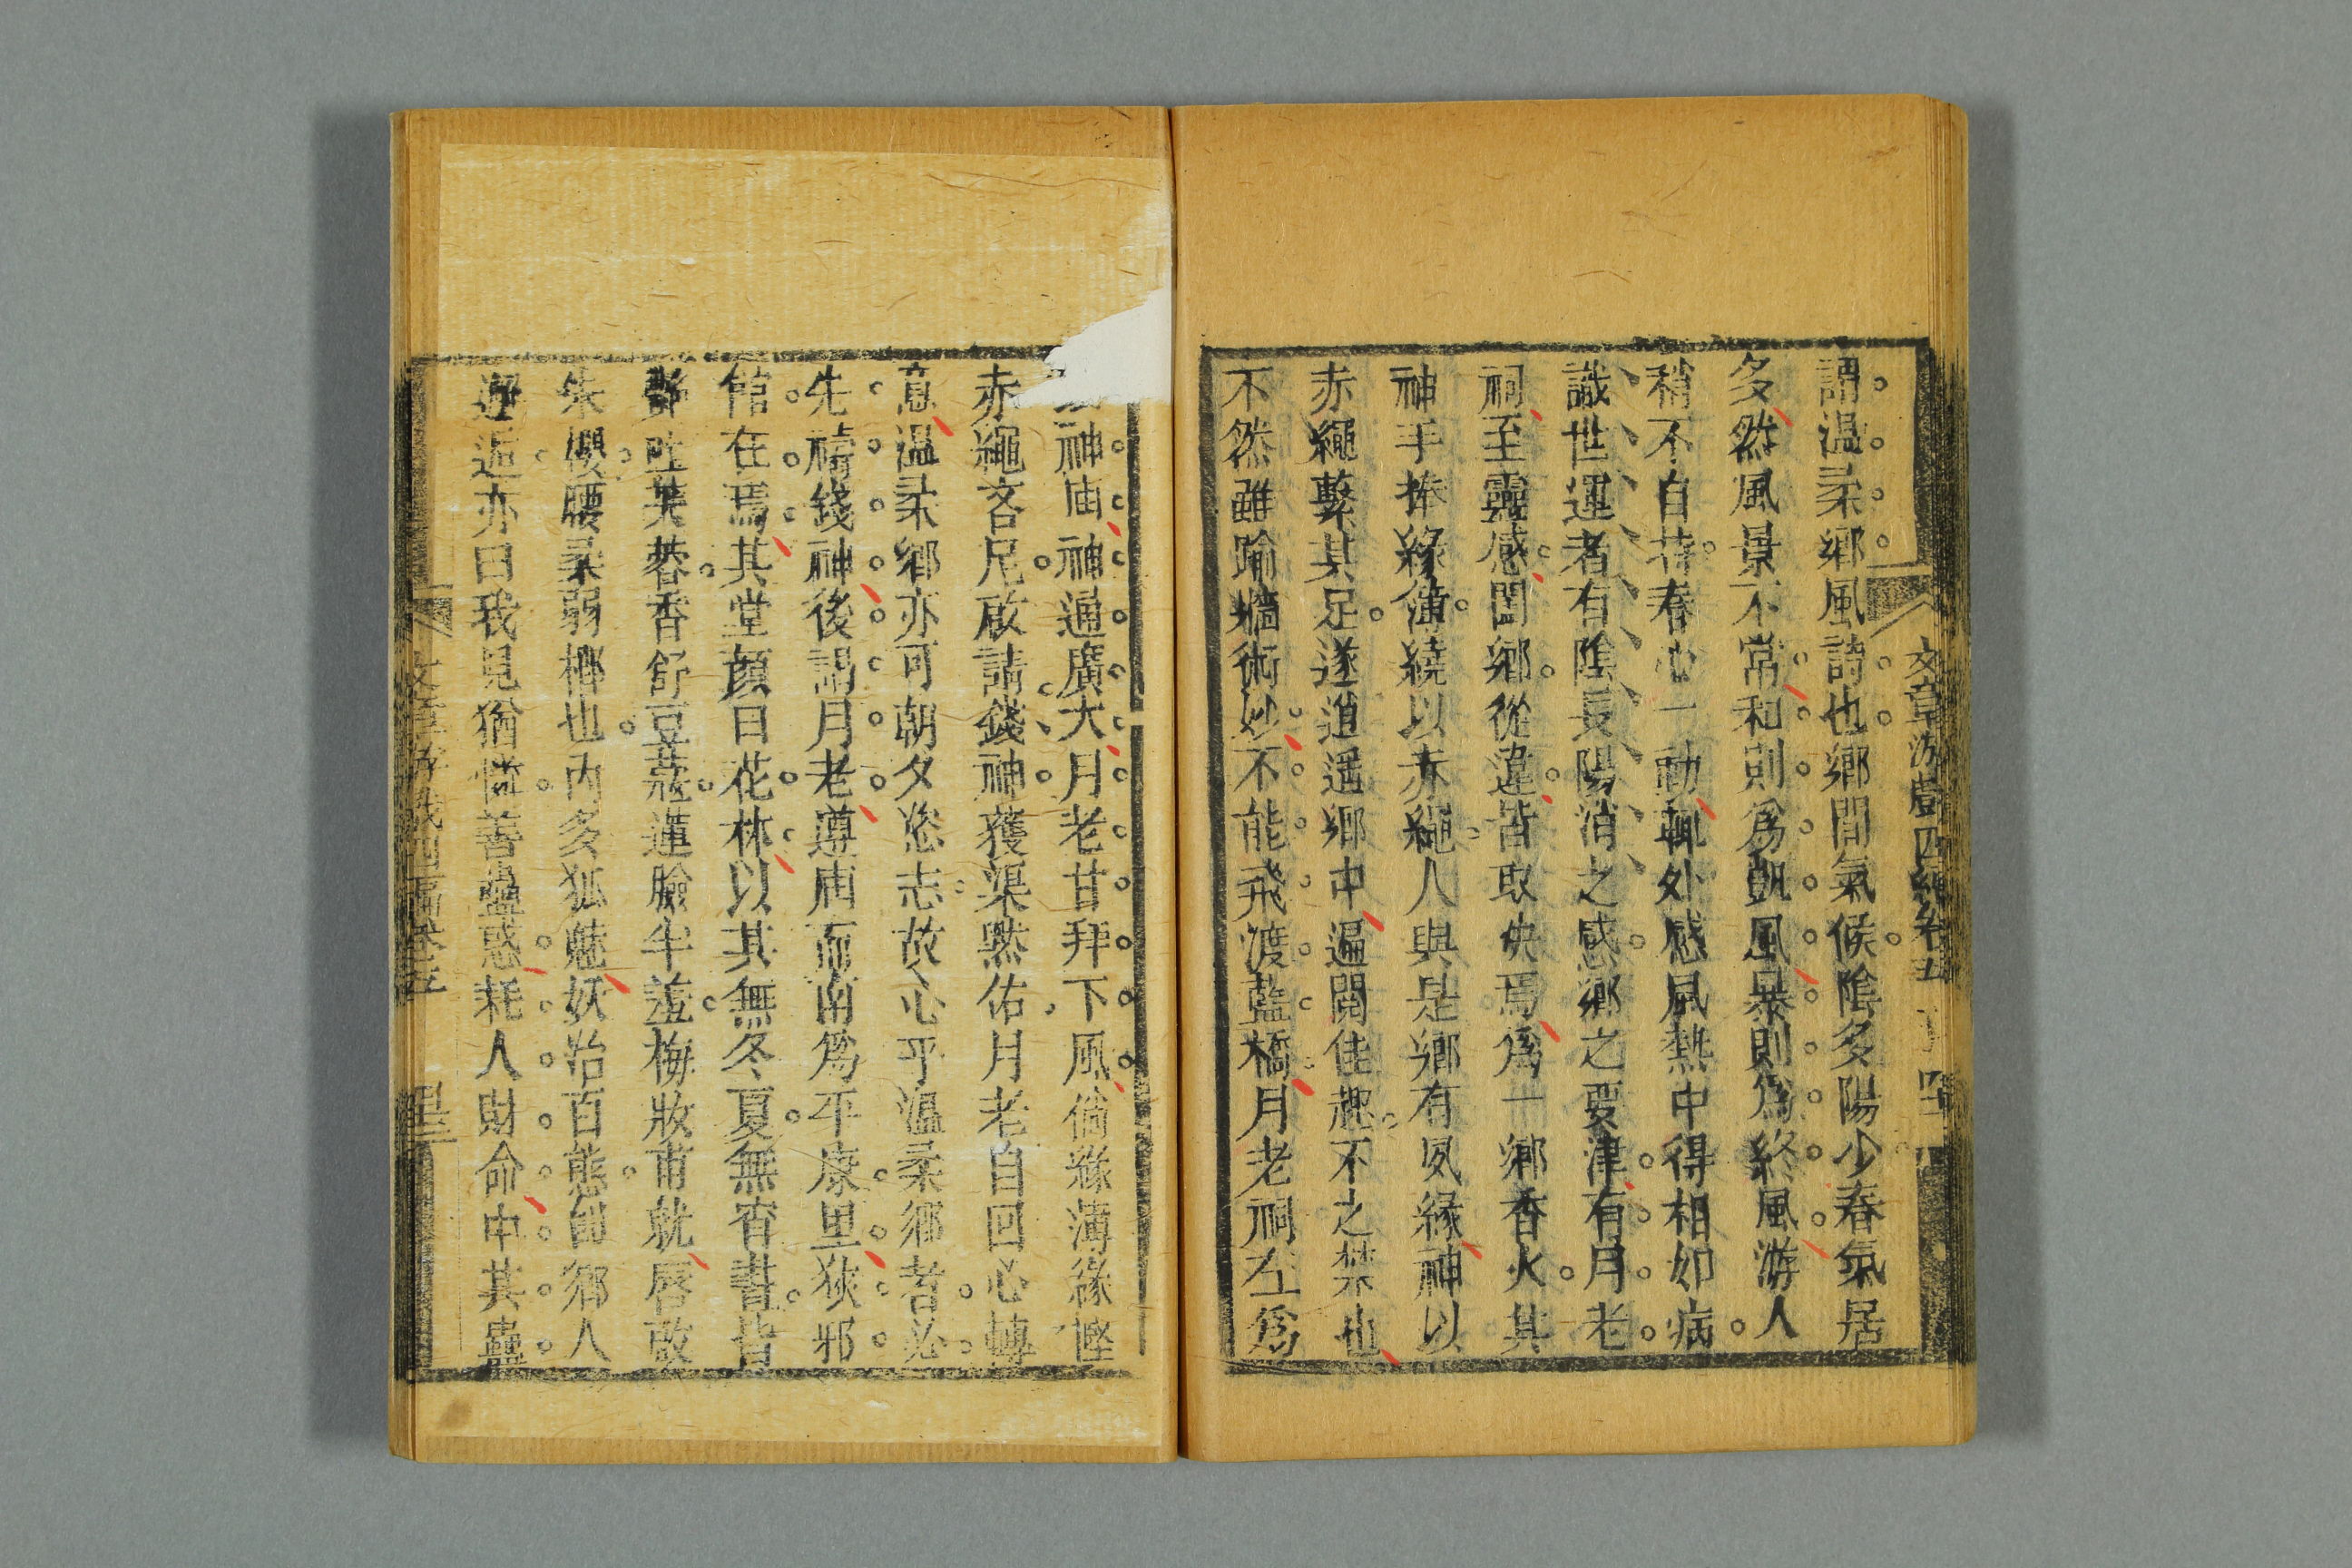 文章游戲四編卷五
謂温柔鄉風詩也鄉間氣候陰多陽少春氣居
多然風景不常和則爲凱風暴則爲終風游人
稍不自持春心一動輒外感風熱中得相如病
識世運者有陰長陽消之感鄉之要津有月老
祠至靈感閤鄉從違皆取決焉爲一鄉香火其
神手捧緣簿繞以赤繩人與是鄉有夙緣神以
赤繩繫其足遂逍遥鄉中遍閱佳趣不之禁也
不然雖踰牆術妙不能飛渡藍橋月老祠左爲
神庙神通廣大月老甘拜下風倘緣薄緣慳
赤繩吝足啟請錢神獲渠黙佑月老自囬心轉
意温柔鄉亦可朝夕恣志故心乎温柔鄉者必
先禱錢神後謁月老遵庙而南爲平康里狹邪
館在焉其堂顔曰花林以其無冬夏無宵晝皆
吐芙蓉香舒豆蔻蓮臉半羞梅妝甫就唇啟
朱櫻腰柔弱栁也内多狐魅妖冶百態卽鄉人
邂逅亦曰我見猶憐善蠱惑耗人財命中其蠱
文章游戲四編卷五